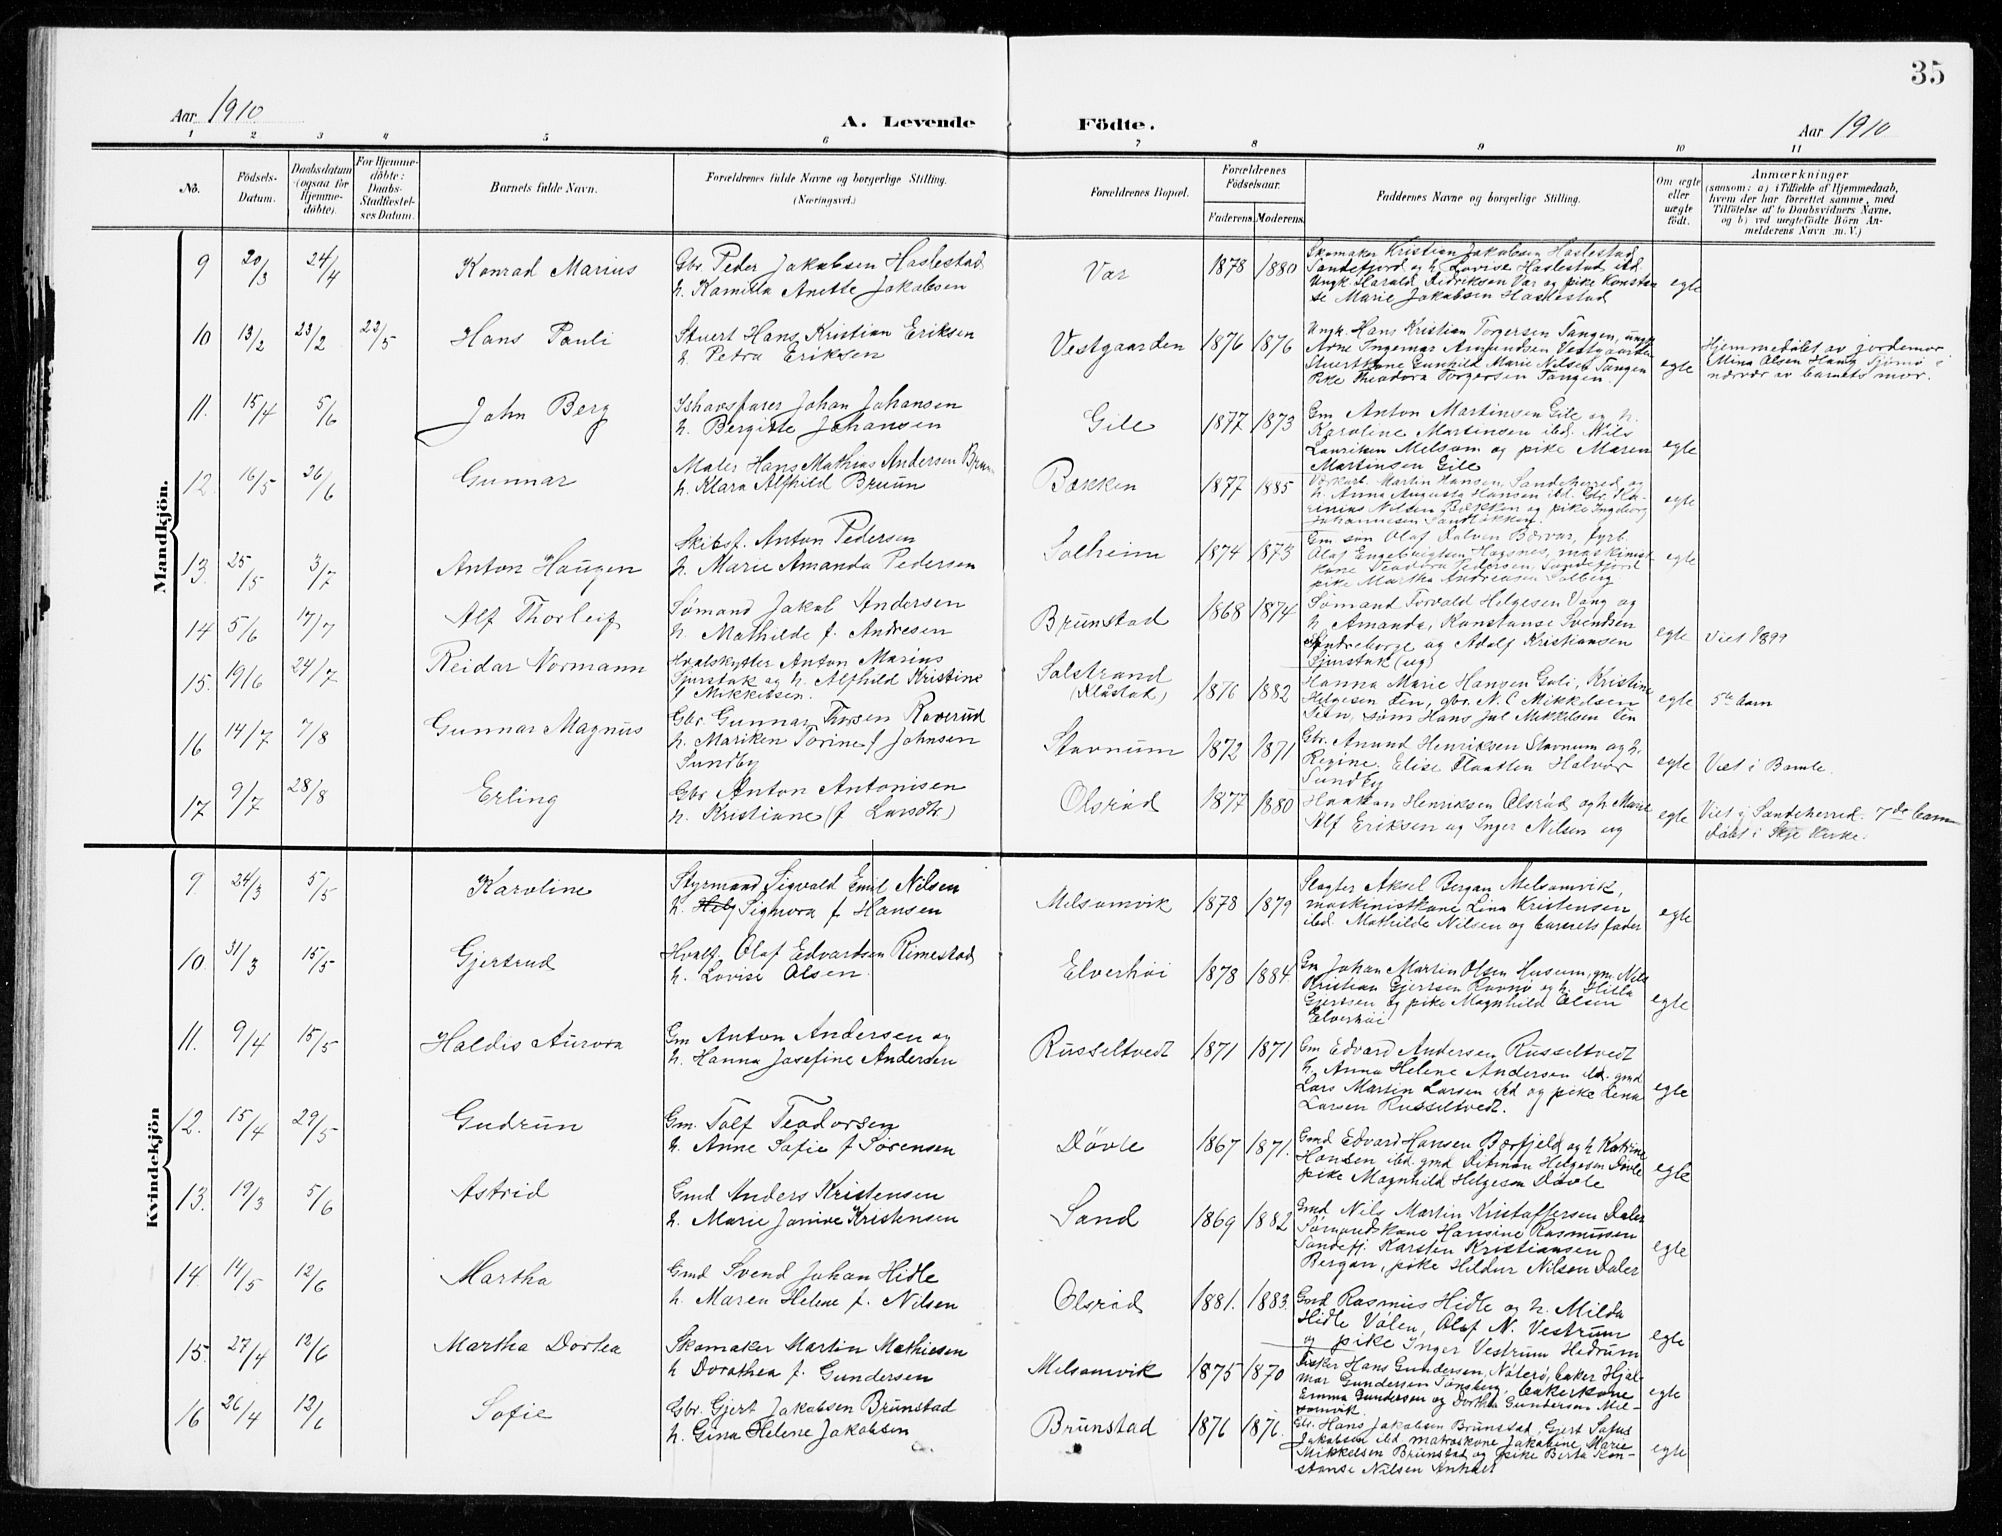 35
Aar 1910
A. Levende Födte.
Aar 1910
1 2 3 4 5 6 7 8 9 10 11
No.
Födsels-Datum.
Daabsdatum (ogsaa for Hjemme-döbte).
For Hjemme-döbte: Daabs-Stadfæstel-ses Datum.
Barnets fulde Navn.
Forældrenes fulde Navne og borgerlige Stilling.
(Næringsvei.)
Forældrenes Bopæl.
Forældrenes Födselsaar.
Faderens. Moderens.
Faddernes Navne og borgerlige Stilling.
Om ægte eller uægte födt.
Anmærkninger
(saasom: a) i Tilfælde af Hjemmedaab,
hvem der har forrettet samme, med
Tilföielse af to Daabsvidners Navne,
og b) ved uægtefödte Börn An-
melderens Navn m. V.)
Mandkjön.
9 20/3 24/4 Konrad Marius
Gbr. Peder Jakobsen Haslestad
h. Kamilla Anette Jakobsen
Vær 1878 1880
Skomaker Kristian Jakobsen Haslestad
Sandefjord og h. Lovise Haslestad ibd.
Ungk. Harald Fredriksen Vær og pike Konstan
se Marie Jakobsen Haslestad
egte
10 13/2 23/2 22/5 Hans Pauli
Stuert Hans Kristian Eriksen
h. Petra Eriksen
Vestgaarden 1876 1876
Ungk. Hans Kristian Torgersen Tangen, ungk
Arne Ingemar Amundsen Vestgaarden
Stuertkone Gunhild Marie Nilsen Tangen
Pike Theodora Torgersen Tangen.
egte
Hjemmedøbt av jordemor
Mina Olsen Haug Tjømø i
nærvær av barnets mor.
11. 15/4 5/6 John Berg
Ishavsfarer Johan Johansen
h. Bergitte Johansen
Gile 1877 1873
Gm Anton Martinsen Gile og h.
Karoline Martinsen ibd. Nils
Lauriken Melsom og pike Maren
Martinsen Gile
egte
12. 16/5 26/6 Gunnar
Maler Hans Mathias Andersen Bruun
h. Klara Alfhild Bruun
Bækken 1877 1885
Martin Hansen, Sandeherred og
h. Anna Augusta Hansen ibd. Gbr. Ka-
renius Nilsen Bækken og pike Ingeborg
Johannesen Sandløkken.
egte
13. 25/5 3/7 Anton Haugen
Skibsf. Anton Pedersen
h. Marie Amanda Pedersen
Solheim 1874 1873
Gm søn Olaf Dalven Bærvar, fyrb.
Olaf Engebrigtsen Hogsnes, maskinist
kone Teodora Pedersen, Sandefjord
pike Martha Andreasen Solberg
egte
14 5/6 17/7 Alf Thorleif
Sømand Jakob Andersen
h. Mathilde f. Andresen
Brunstad 1868 1874
Sømand Torvald Helgesen Vang og
h. Amanda, Konstanse Svendsen
Sundreborge og Adolf Kristiansen
Gjurstak (ug)
egte Viet 1899
15. 19/6 24/7 Reidar Normann
Hvalskytter Anton Marius
Gjurstak og h. Alfhild Kristine
f Mikkelsen.
Solstrand
(Klåstad) 1876 1882
Hanna Marie Hansen Guli, Kristine
Helgesen Fen, gbr. N. C Mikkelsen
Fen, søm Hans Jul Mikkelsen Fen
egte 5te barn
16 14/7 7/8 Gunnar Magnus
Gbr. Gunnar Thosen Roverud
h. Mariken Torine f Johnsen
Sundby
Stavnum 1872 1871
Gbr. Anund Henriksen Stavnum og h.
Regine. Elise Flaatten Halvor
Sundby
egte Viet i Bamle.
17 9/7 28/8 Erling
Gbr Anton Antonisen
h. Kristiane (f Larsdtr)
Olsrød 1877 1880
Haakon Henriksen Olsrød og h Marie
Alf Eriksen ug Inger Nilsen ug
egte Viet i Sandeherred. 7de barn
Døbt i Skje kirke.
Kvindekjön
9. 24/3 5/5 Karoline
Styrmand Sigvald Emil Nilsen
h. Helg Signora f Hansen
Melsomvik 1878 1879
Slagter Aksel Bergan Melsomvik,
maskinistkone Lina Kristensen
ibd. Mathilde Nilsen og barnets fader
egte
10. 31/3 15/5 Gjertrud
Hvalf. Olaf Edvardsen Rimestad
h. Lovise Olsen
Elverhøi 1878 1884.
Gm Johan Martin Olsen Husum, gm. Nils
Kristian Gjertsen Ravnø og h. Hilla
Gjertsen og pike Magnhild Olsen
Elverhøi
egte
11. 9/4 15/5 Haldis Aurora
Gm Anton Andersen og
h. Hanna Josefine Andersen
Russeltvedt 1871 1871
Gm Edvard Andersen Russeltvedt
h, Anna Helene Andersen ibd. gmd
Lars Martin Larsen ibd og pike Lena
Larsen Russeltvedt.
egte
12. 15/4 29/5 Gudrun
Gm. Tolf Teodorsen
h. Anne Sofie f Sørensen
Døvle 1867 1871.
Gmd Edvard Hansen Bærfjeld og h Katrine
Hansen ibd. gmd Ditman Helgesen Døvle
pike Magnhild Helgesen Døvle
egte
13. 19/3 5/6 Astrid
Gmd Anders Kristensen
h. Marie Janine Kristensen
Sand 1869 1882
Gmd Nils Martin Kristoffersen Daler
Sømandskone Hansine Rasmussen
Sandefj. Karsten Kristiansen
Bergan, pike Hildur Nilsen Daler
egte
14. 14/5 12/6 Martha
Gmd Svend Johan Hidle
h. Maren Helene f. Nilsen
Olsrød 1881. 1883.
Gmd Rasmus Hidle og h. Milda
Hidle Valen, Olaf N. Vestrum
og pike Inger Vestrum Hedrum
egte
15. 27/4 12/6 Martha Dortea
Skomaker Martin Mathisen
h Dorothea f. Gundersen
Melsomvik 1875 1870
Fisker Hans Gundersen, Nøterø, baker Hjal-
mar Gundersen Tønsberg, bakerkone
Emma Gundersen og Dorthea Gundersen Mel-
somvik.
egte
16 26/4 12/6 Sofie
Gbr. Gjert Jakobsen Brunstad
h. Gina Helene Jakobsen
Brunstad 1876 1876.
Gbr. Hans Jakobsen Brunstad, Gjert Sofus
Jakobsen ibd, matroskone Jakobine Marie
Mikkelsen Brunstad og pike Berta Kon-
stanse Nilsen Anholt
egte